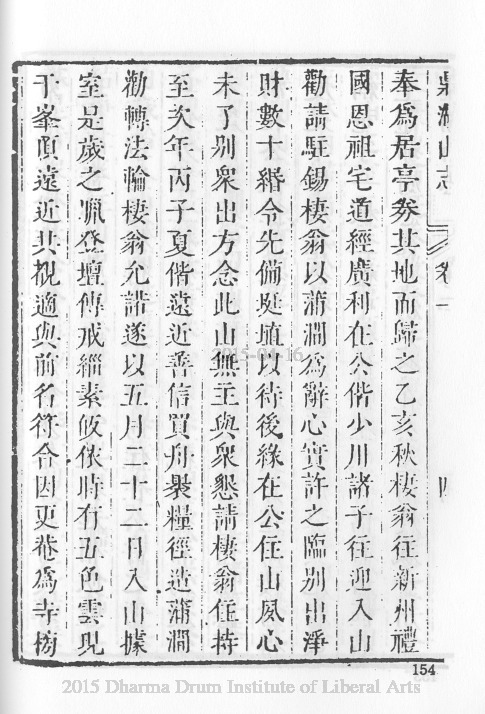 鼎湖山志 卷一 四
奉為居亭券其地而歸之乙亥秋棲翁往新州禮
國恩祖宅道經廣利在公偕少川諸子往迎入山
勸請駐錫棲翁以蒲澗為辭心實許之臨別出淨
財數十緡令先備埏埴以待後緣在公住山夙心
未了別眾出方念此山無主與眾懇請棲翁住持
至次年丙子夏偕遠近善信買舟聚糧徑造蒲澗
勸轉法輪棲翁允諾遂以五月二十二日入山據
室是歲之臘登壇傳戒緇素皈依時有五色雲見
于峯頂遠近共覩適與前名符合因更菴為寺榜
154
2015 Dharma Drum Institute of Liberal Arts